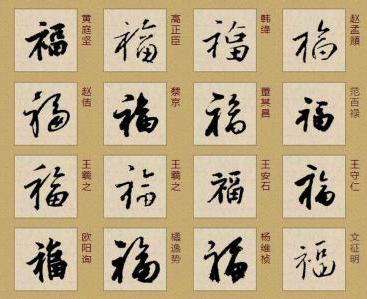 福 黄庭坚
福 高正臣
福 韩绛
福 赵孟頫
福 赵佶
福 蔡京
福 董其昌
福 范百禄
福 王羲之
福 王羲之
福 王安石
福 王守仁
福 欧阳询
福 橘逸势
福 杨维桢
福 文征明